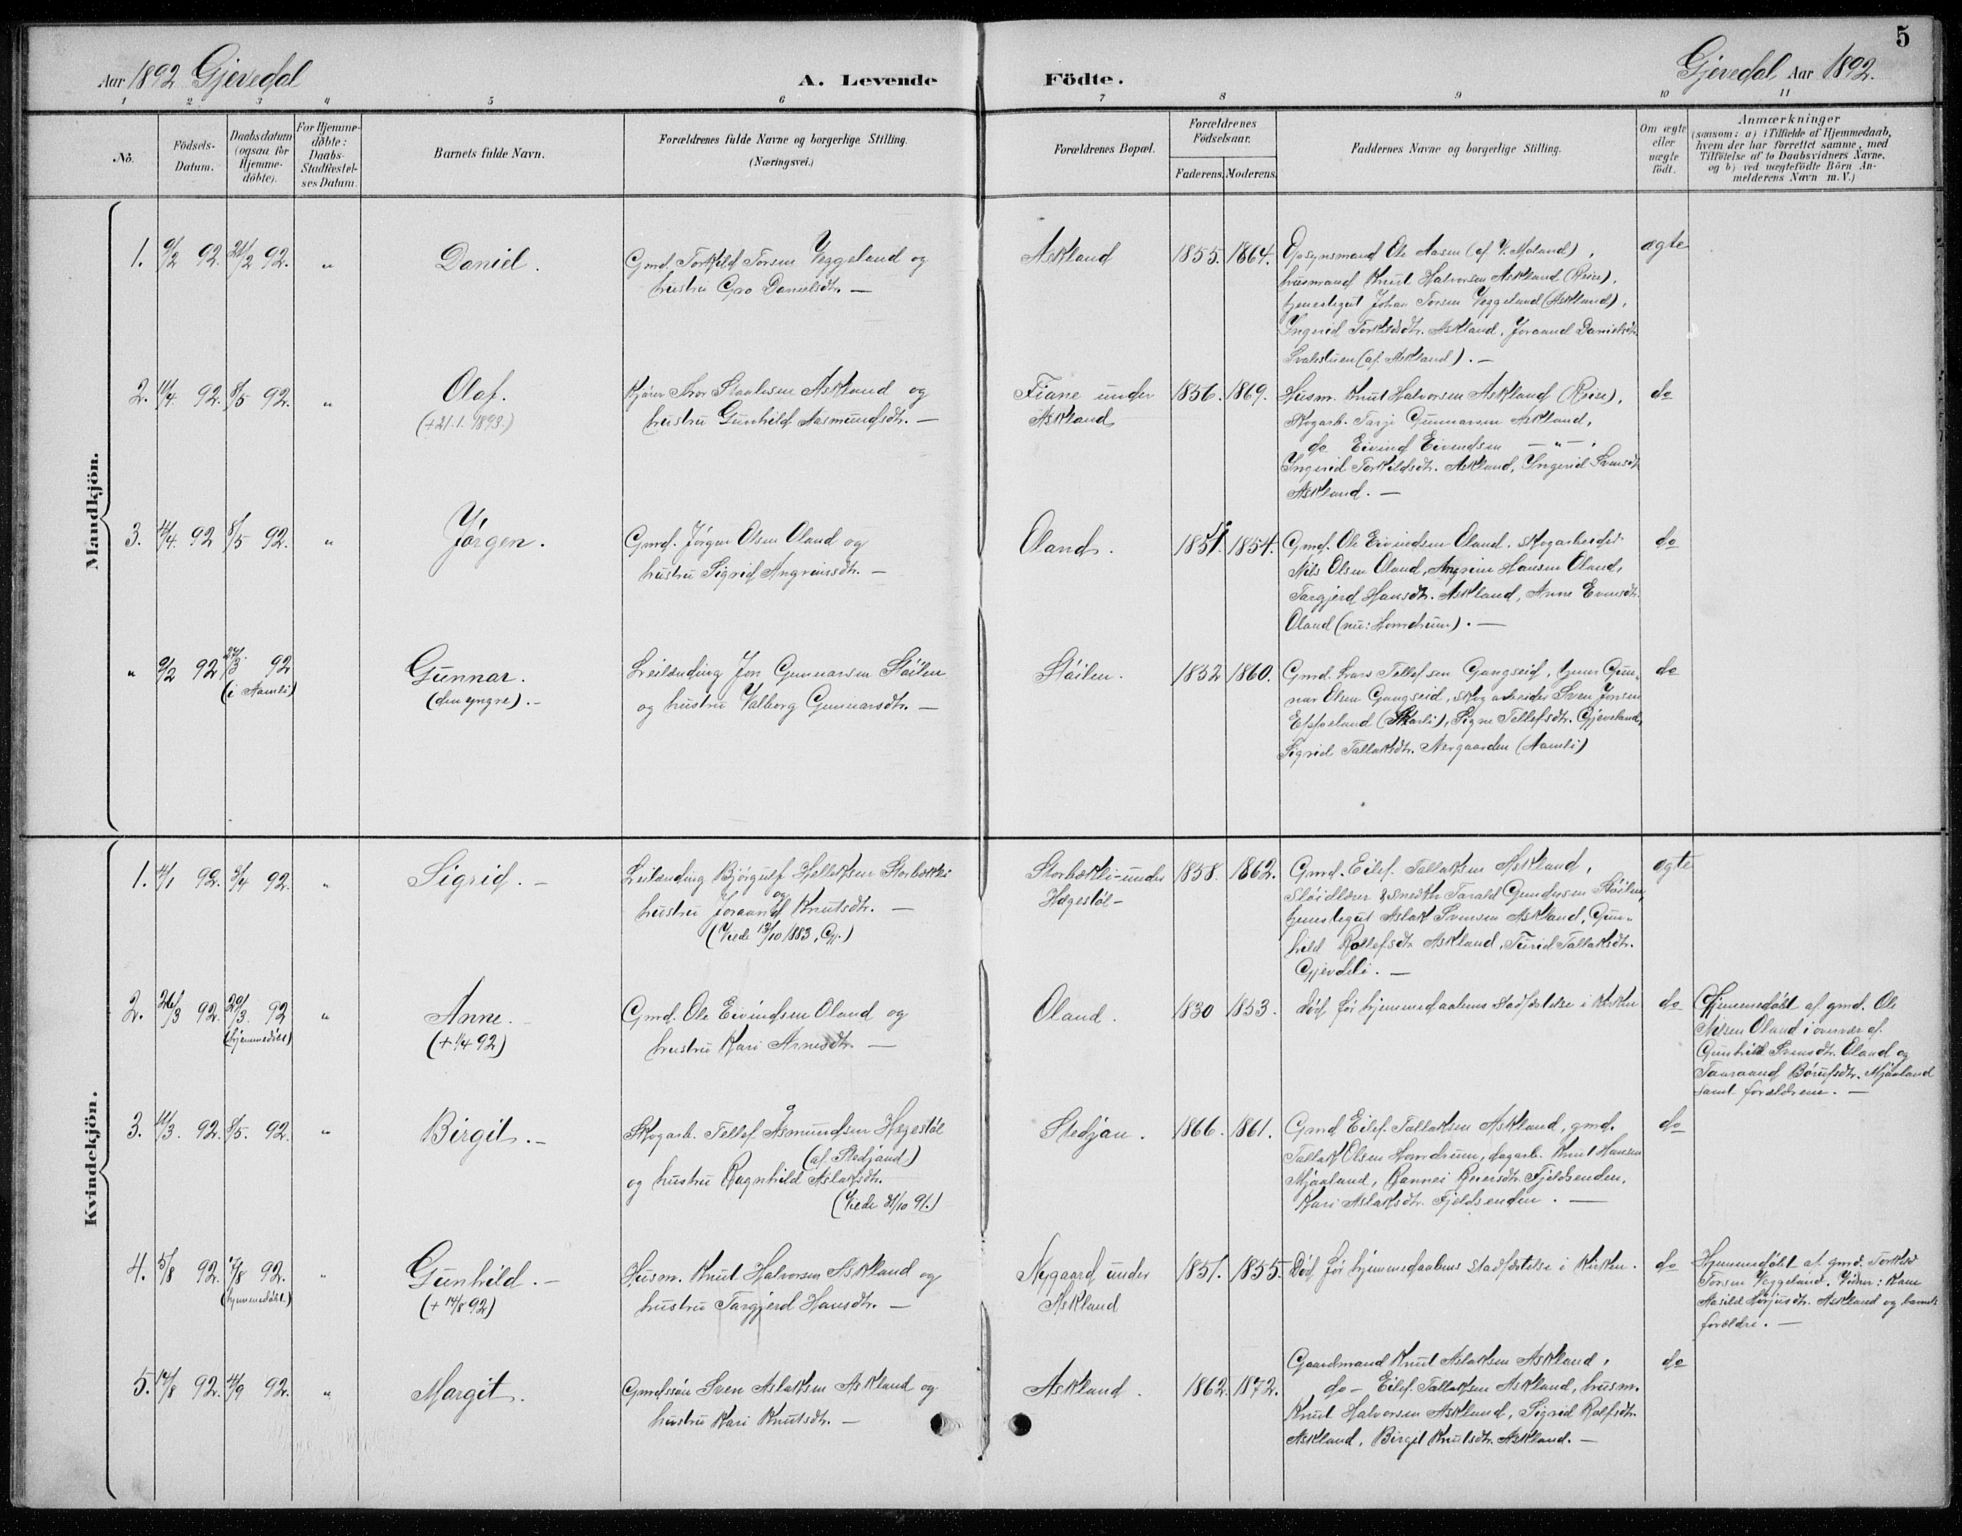 5
Aar 1892 Gjevedal
A. Levende Födte.
Gjevedal Aar 1892.
1 2 3 4 5 6 7 8 9 10 11
No.
Födsels-
Datum.
Daabsdatum
(ogsaa for
Hjemme-
döbte).
For Hjemme-
döbte:
Daabs-
Stadfæstel-
ses Datum.
Barnets fulde Navn.
Forældrenes fulde Navne og borgerlige Stilling.
(Næringsvei.)
Forældrenes Bopæl.
Forældrenes
Födselsaar.
Faderens. Moderens.
Faddernes Navne og borgerlige Stilling.
Om ægte
eller
uægte
födt.
Anmærkninger
(saasom: a) i Tilfælde af Hjemmedaab,
hvem der har forrettet samme, med
Tilföielse af to Daabsvidners Navne,
og b) ved uægtefödte Börn An-
melderens Navn m. V.)
Mandkjön.
1. 9/2 92. 21/2 92. "
Daniel.
Gmd. Torkild Torsen Veggeland og
hustru Gro Danielsdtr. —
Askland
1855. 1864.
Opsynsmand Ole Aasen (af V. Moland),
husmand Knut Halvorsen Askland (Reise),
tjenestegut Johan Torsen Veggeland (Askland),
Yngerid Torkildsdtr. Askland, Joraand Danielsdtr.
Svalestuen (af Askland). —
ægte
2. 11/4 92. 8/5 92. "
Olaf.
(+21.1.1893.)
Kjører Thor Staalesen Askland og
hustru Gunhild Aasmundsdtr. —
Fiane under
Askland
1856. 1869.
Husm. Knut Halvorsen Askland (Reise),
Skogarb. Tarje Gunnarsen Askland,
do Eivind Eivindsen — " — ,
Yngerid Torkildsdtr. Askland, Yngerid Svensdtr
Askland. —
do
3. 14/4 92 8/5 92. "
Jørgen.
Gmd. Jørgen Olsen Oland og
hustru Sigrid Angrimsdtr. —
Oland.
1854.
Gmd. Ole Eivindsen Oland, skogarbeider
Nils Olsen Oland, Angrim Hansen Oland,
Targjerd Hansdtr. Askland, Anne Evensdtr.
Oland (nu: Homdrum). —
do
" 9/2 92 27/3 92
(i Aamli)
Gunnar.
(den yngre). —
Leilænding Jon Gunnarsen Støilen
og hustru Valborg Gunnarsdtr. —
Støilen.
1852 1860.
Gmd. Lars Tellefsen Gangseid, tjener Gun-
nar Olsen Gangseid, skogarbeider Sven Jensen
Eppeland (Skarli), Signe Tellefsdtr. Gjeveland,
Sigrid Tallaksdtr. Nergaarden (Aamli)
do
Kvindekjön.
1. 4/1 92. 3/4 92. "
Sigrid. —
Leilænding Bjørgulf Hellaksen Storbækki
og
hustru Joraand Knutsdtr. —
(Viede 13/10 1883, Gj.)
Storbækki under
Hægestøl —
1858. 1862.
Gmd. Eilef Tallaksen Askland,
Sløidlærer & snedker Tarald Gundersen Støilen,
tjenestegut Aslak Svensen Askland, Gun-
hild Rollefsdtr. Askland, Turid Tallaksdtr.
Gjevdeli. —
ægte
2. 26/3 92. 29/3. 92 "
(hjemmedøbt)
Anne. —
(+ 1/4 92)
Gmd. Ole Eivindsen Oland og
hustru Kari Arnesdtr. —
Oland.
1830 1853.
Død før hjemmedaabens stadfæstelse i kirken
do
Hjemmedøbt af gmd. Ole
Nilsen Oland i overvær af
Gunhild Svensdtr. Oland og
Taaraand Børufsdtr. Mjaaland
samt forældrene. —
3. 11/3. 92. 8/5. 92. "
Birgit. —
Skogarb. Tellef Asmundsen Hegestøl
(af Stedjand)
og hustru Ragnhild Aslaksdtr.
(Viede 31/10 91.)
Stedjan.
1866. 1861.
Gmd Eilef Tallaksen Askland, gmd.
Tallak Olsen Homdrum, dagarb. Knut Hansen
Mjaaland, Rannei Reiersdtr. Fjeldsenden,
Kari Aslaksdtr. Fjeldsenden. —
do
4. 5/8 92. 7/8 92. "
(hjemmedøbt)
Gunhild. —
(+ 14/8 92)
Husm. Knut Halvorsen Askland og
hustru Targjerd Hansdtr. —
Nygaard under
Askland
1851. 1855.
Død før hjemmedaabens stadfæstelse i kirken.
do
Hjemmedøbt af gmd. Torkild
Torsen Veggeland. Vidner: Kone
Aasild Askland og barnets
forældre. —
5. 14/8 92. 4/9 92. "
Margit.
Gmdssøn Sven Aslaksen Askland og
hustru Kari Knutsdtr. —
Askland.
1862. 1872.
Gaardmand Knut Aslaksen Askland,
do — Eilef Tallaksen Askland, husm.
Knut Halvorsen Askland, Sigrid Rolfsdtr.
Askland, Birgit Knutsdtr. Askland. —
do